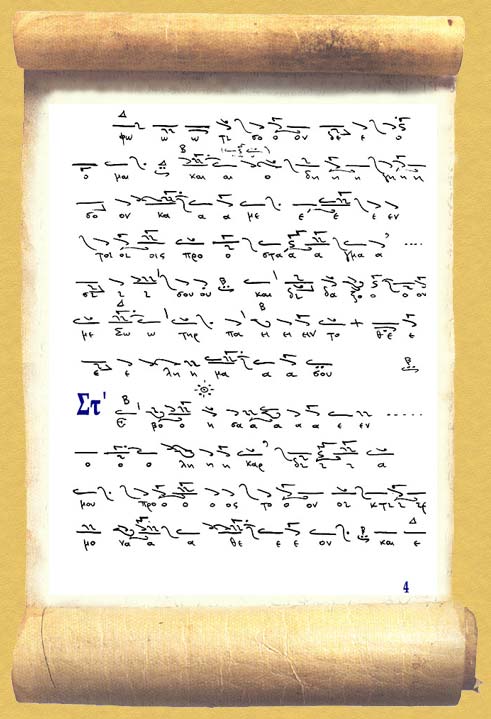 φω ω ω τι σο ο ον δε ε ο
ο μαι και αι ο δη η η γη η η
σο ον κα α α με ε ε ε εν
τοι οι οις προ ο στα α α γμα α
σι ι ι σου ου και δι δα ξο ο ο ον
με Σω ω τηρ το θε ε
ε ε λη η μα α α σου
Στ' Ε βο ο η σα α α α α ε εν
ο ο ο λη η η καρ δι ι ι α
μου προ ο ο ος το ο ον οι κτι ι ιρ
μο να α α θε ε ε ον και ε
4